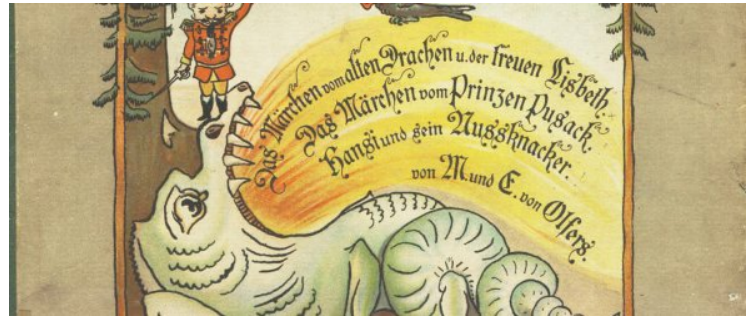 Das Märchen vom alten Drachen u. der treuen Lisbeth.
Das Märchen vom Prinzen Pusack.
Hansi und sein Nussknacker.
von M. und E. von Olfers.